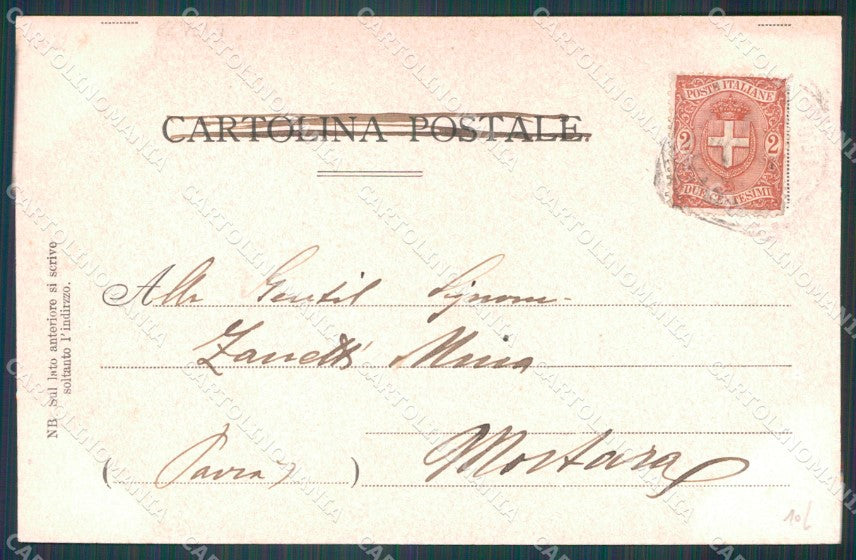 CARTOLINA POSTALE.
POSTE ITALIANE
2 2
DUE CENTESIMI
NB. Sul lato anteriore si scrive
soltanto l'indirizzo.
Alla Gentil Signora
Zanetti Mina
(Pavia)
Mortara
10L
CARTOLINOMANIA